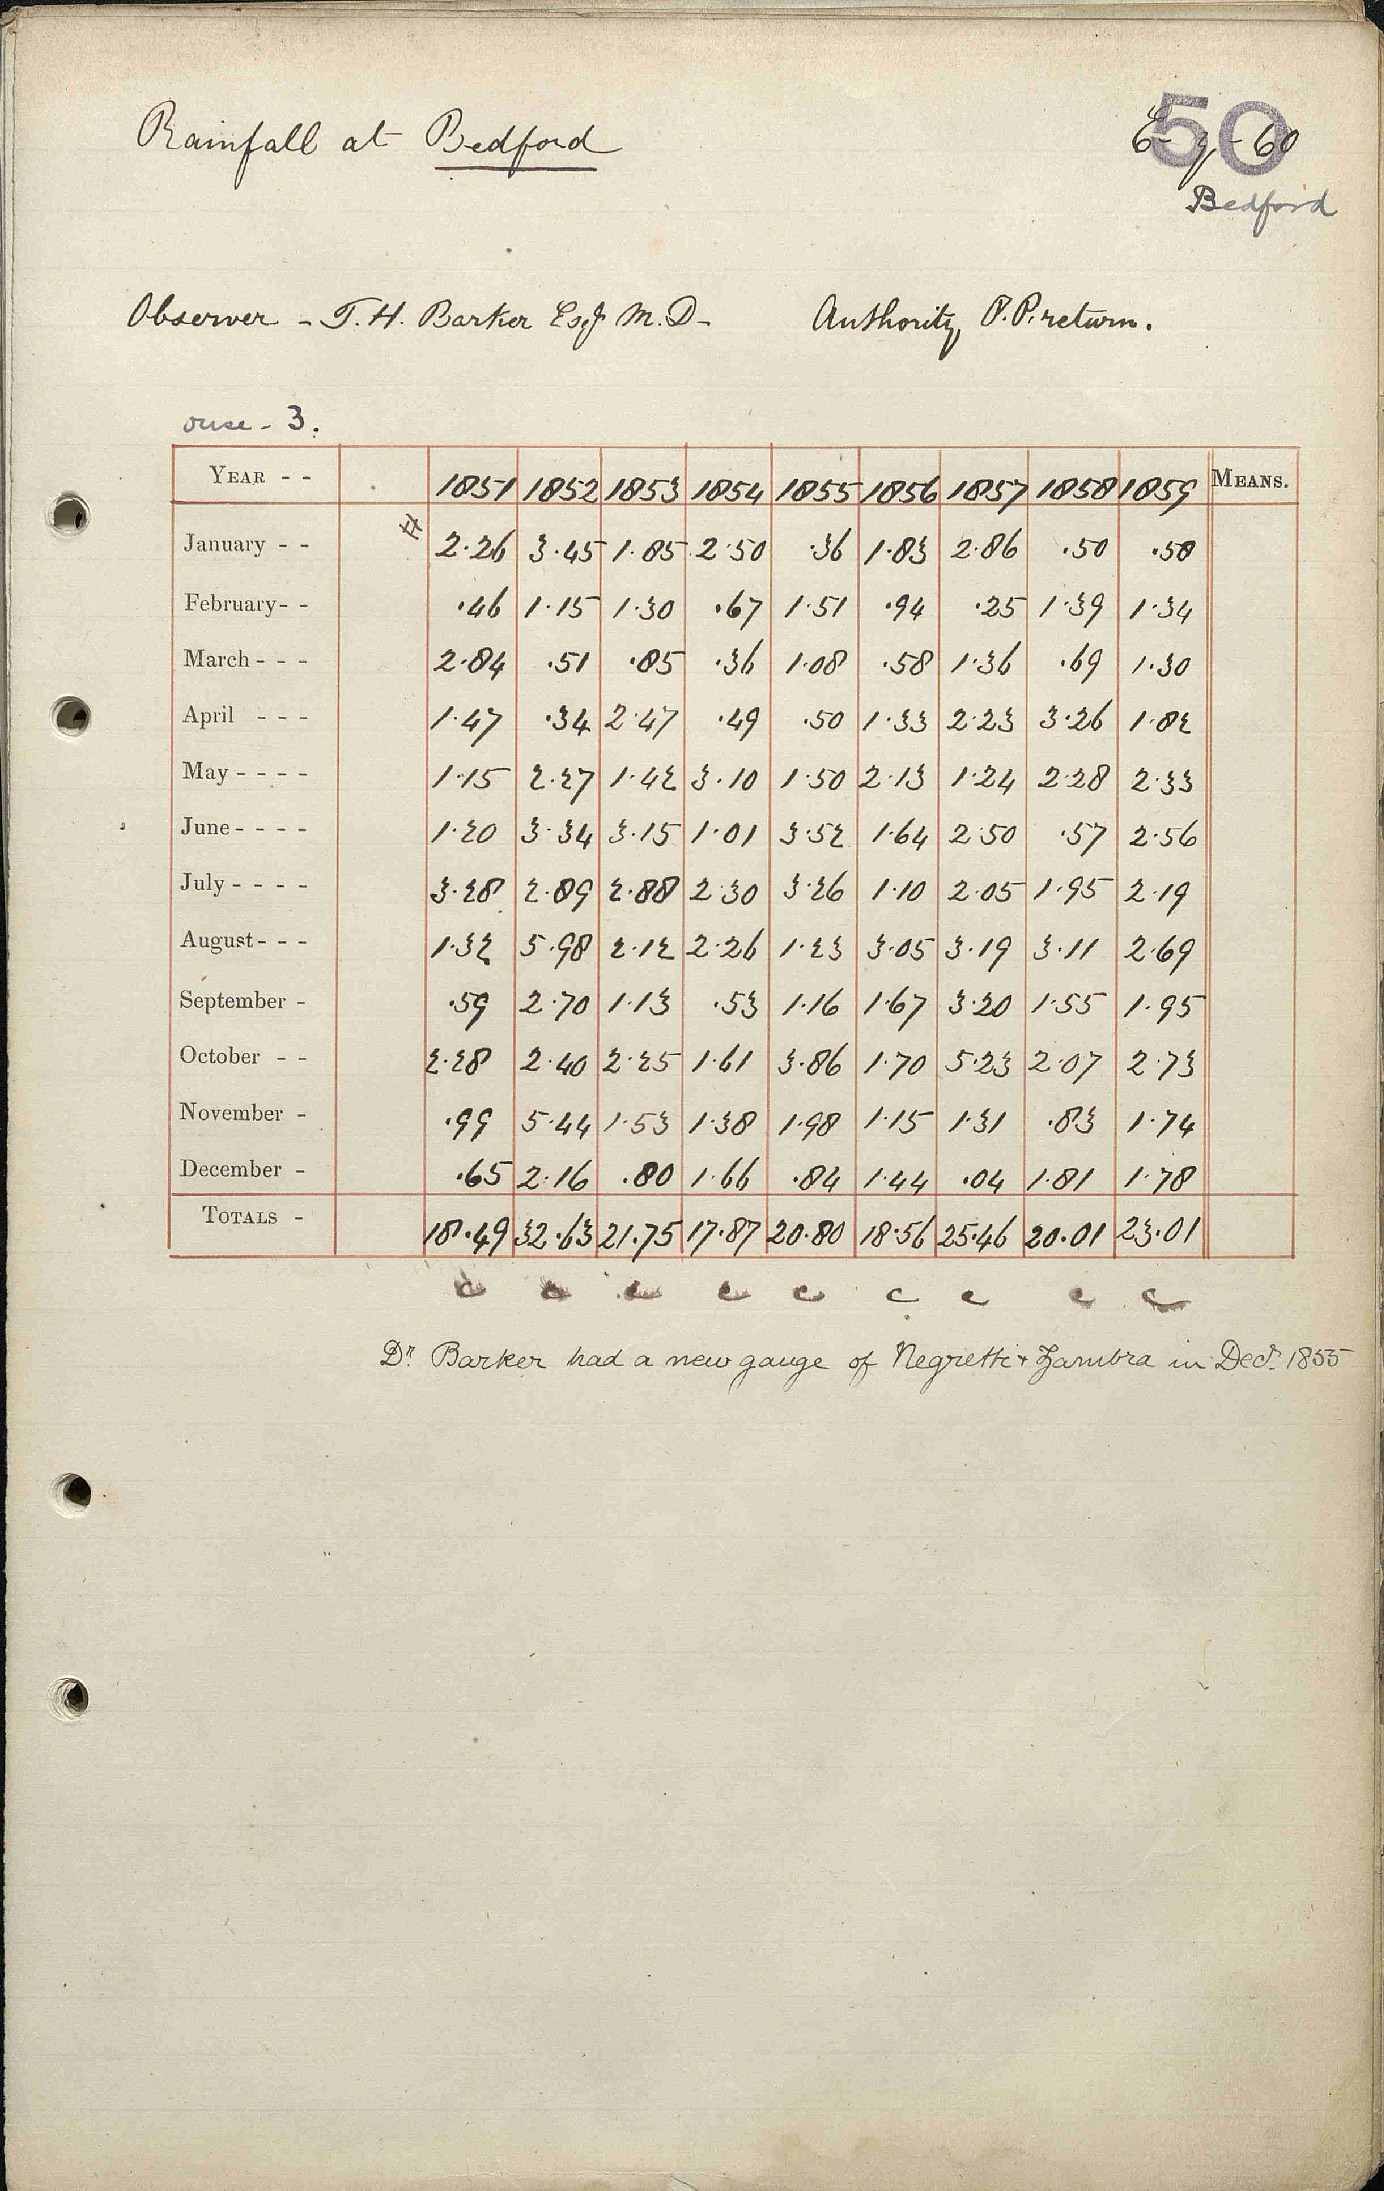 Rainfall at Bedford
50
Bedford
Observer - T. H. Barker Esq M.D- Authority, P.P. return.
ouse - 3.
YEAR - - 1851 1852 1853 1854 1855 1856 1857 1858 1859 MEANS.
January - - # 2.26 3.45 1.85 2.50 .36 1.83 2.86 .50 .58
February - - .46 1.15 1.30 .67 1.51 .94 .25 1.39 1.34
March - - - 2.84 .51 .85 .36 1.08 .58 1.36 .69 1.30
April - - - 1.47 .34 2.47 .49 .50 1.33 2.23 3.26 1.82
May - - - - 1.15 2.27 1.42 3.10 1.50 2.13 1.24 2.28 2.33
June - - - - 1.20 3.34 3.15 1.01 3.52 1.64 2.50 .57 2.56
July - - - - 3.28 2.89 2.88 2.30 3.26 1.10 2.05 1.95 2.19
August - - - 1.32 5.98 2.12 2.26 1.23 3.05 3.19 3.11 2.69
September - .59 2.70 1.13 .53 1.16 1.67 3.20 1.55 1.95
October - - 2.28 2.40 2.25 1.61 3.86 1.70 5.23 2.07 2.73
November - .99 5.44 1.53 1.38 1.98 1.15 1.31 .83 1.74
December - .65 2.16 .80 1.66 .84 1.44 .04 1.81 1.78
TOTALS - 18.49 32.63 21.75 17.87 20.80 18.56 25.46 20.01 23.01
c c c c c c c c c
Dr Barker had a new gauge of Negretti & Zambra in Decr. 1855